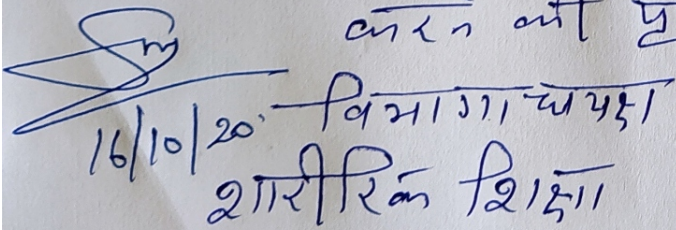 करने की
16/10/20 विभागाध्यक्ष
शारीरिक शिक्षा